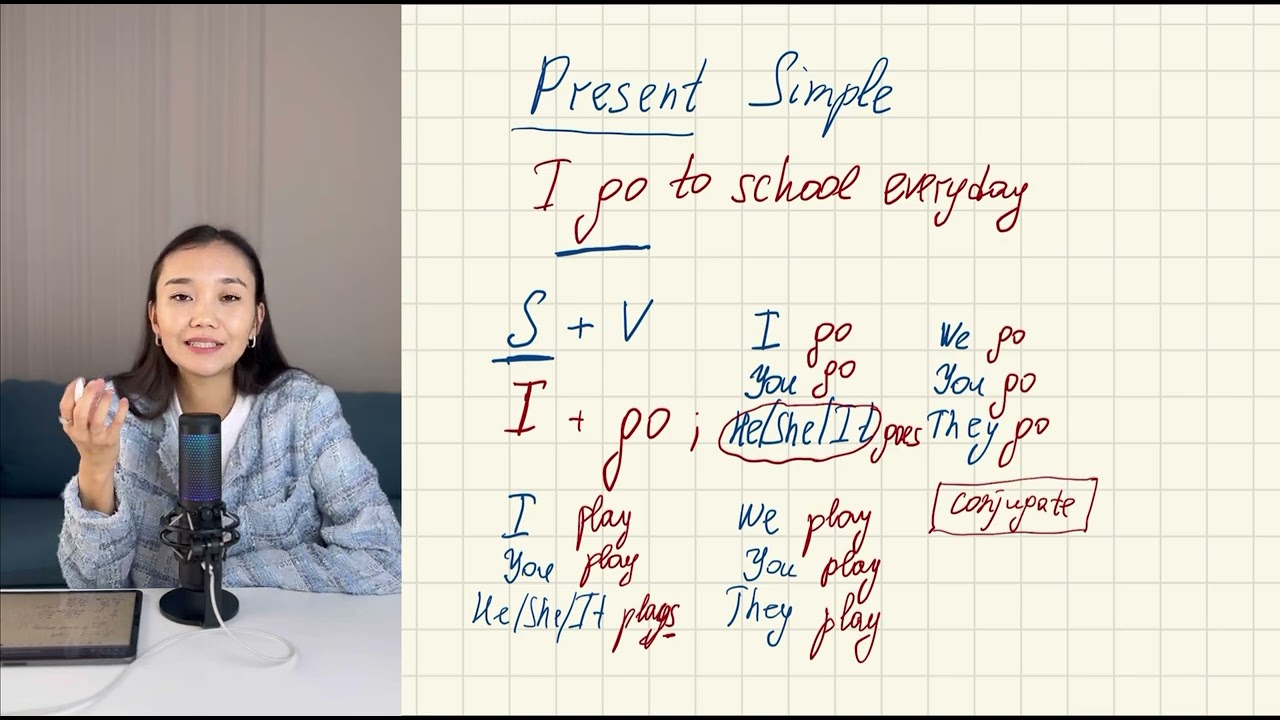 Present Simple
I go to school everyday
S + V
I + go ;
I go
You go
He/She/It goes
We go
You go
They go
conjugate
I play
You play
He/She/It plays
We play
You play
They play